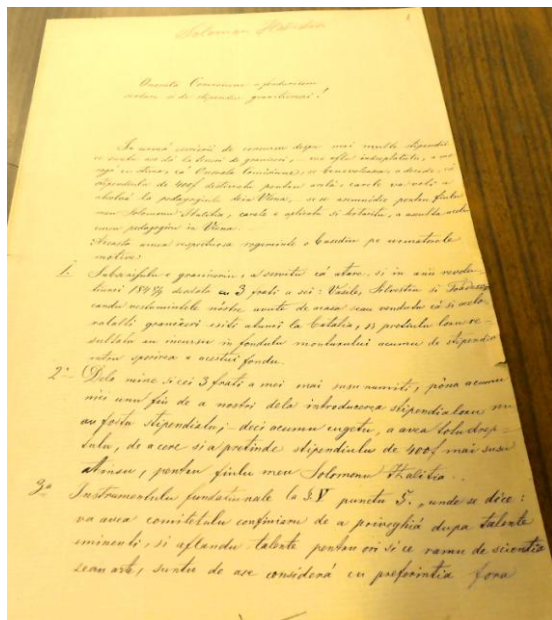 Solomon Halita
Onorată Comisiune afundurilor
scolare si de stipendie granitieresci!
In urma scrierii de concursu despre mai multe stipendii
se dă la feciori de graniceri, me aflu indreptatitu, a me
ruga cu stima, că Onorata Comisiune, se benevoiasca, a decide, că
stipendiulu de 400f destinatu pentru unulu, carele va voi a
absolvá la pedagogiulu din Viena, se se asemnedie pentru fiulu
meu Solomonu Halitia, carele e aplicatu si hotaritu, a asculta
cursu pedagogicu in Viena.
Acesta umea respectuosa rogaminte o basediu pe urmatorele
motive:
1. Subscrisulu e graniceriu, a servitu că atare, si in anii revolu-
tiunii 184 8/9 deodata cu 3 frati a sei: Vasile, Silvestru si
candu vestmintele nóstre avute de acasa seau vendutu că si a celor-
alalti graniceri esiti atunci la batalia, si pretiulu loru re-
sultatu au incursu in fondulu monturului acumu de stipendia
intru sporirea a acestui fondu.
2o Dela mine si cei 3 frati a mei mai susu numiti, pôna acumu
nici unu fiu de a nostri dela introducerea stipendialoru nu
au fostu stipendiatu; deci acumu cugetu, a avea totu drep-
tulu, de a cere si a pretinde stipendiulu de 400f mai susu
atinsu, pentru fiulu meu Solomonu Halitia.
3o Instrumentulu fundationale la §.V punctu 5. „unde se dice:
va avea comitetulu confiniaru de a priveghiá dupa talente
eminenti, si aflandu talente pentru ori si ce ramu de scientia
seau arte, suntu de ase considerá cu preferintia fora